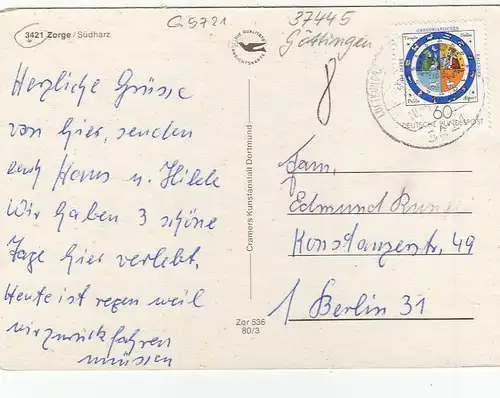 G5721
37445
Göttingen
3421 Zorge / Südharz
Herzliche Grüsse
von hier, senden
euch Hans u. Hilde
Wir haben 3 schöne
Tage hier verlebt.
Heute ist regen weil
wir zurückfahren
müssen
Cramers Kunstanstalt Dortmund
Zor 536
80/3
60
DEUTSCHE BUNDESPOST
3421
Fam.
Edmund
Konstanzerstr. 49
1 Berlin 31